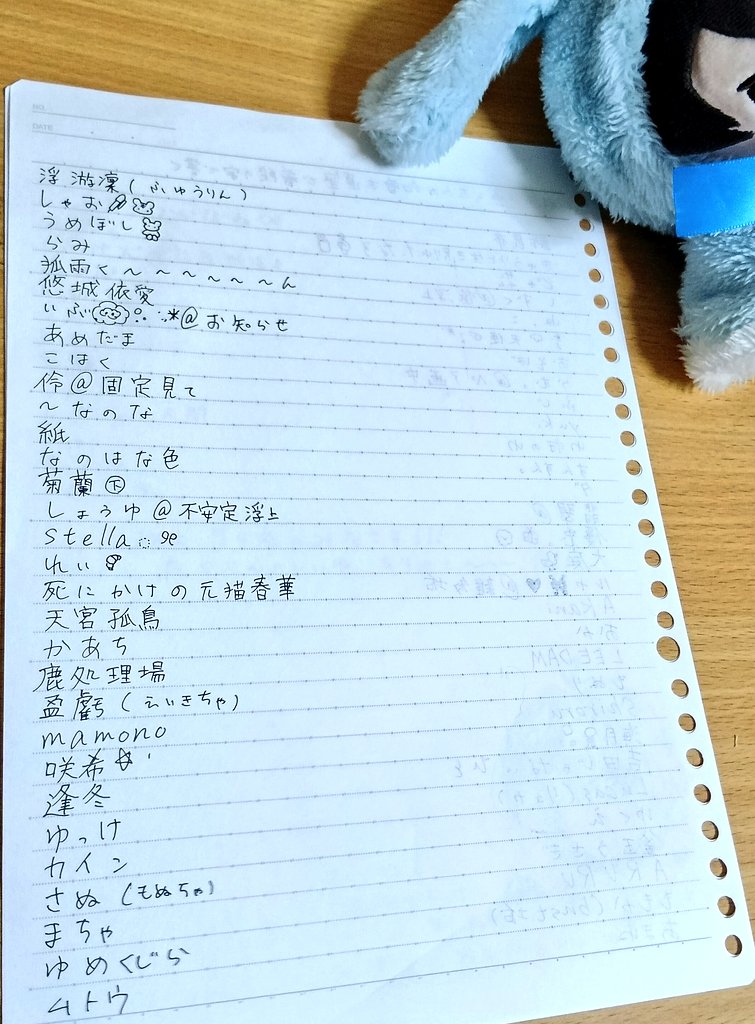 NO.
DATE
浮游凜(ふゅうりん)
しゃお
うめぼし
らみ
狐雨く～～～～～～ん
悠城依愛
いぶ @お知らせ
あめだま
こはく
伶@固定見て
～なのな
紙
なのはな色
菊蘭㊦
しょうゆ@不安定浮上
stella
れい
死にかけの元猫春華
天宮孤鳥
かあち
鹿処理場
盈虧(えいきちゃ)
mamono
咲希
逢冬
ゆっけ
カイン
さぬ(もぬちゃ)
まちゃ
ゆめくじら
ムトウ